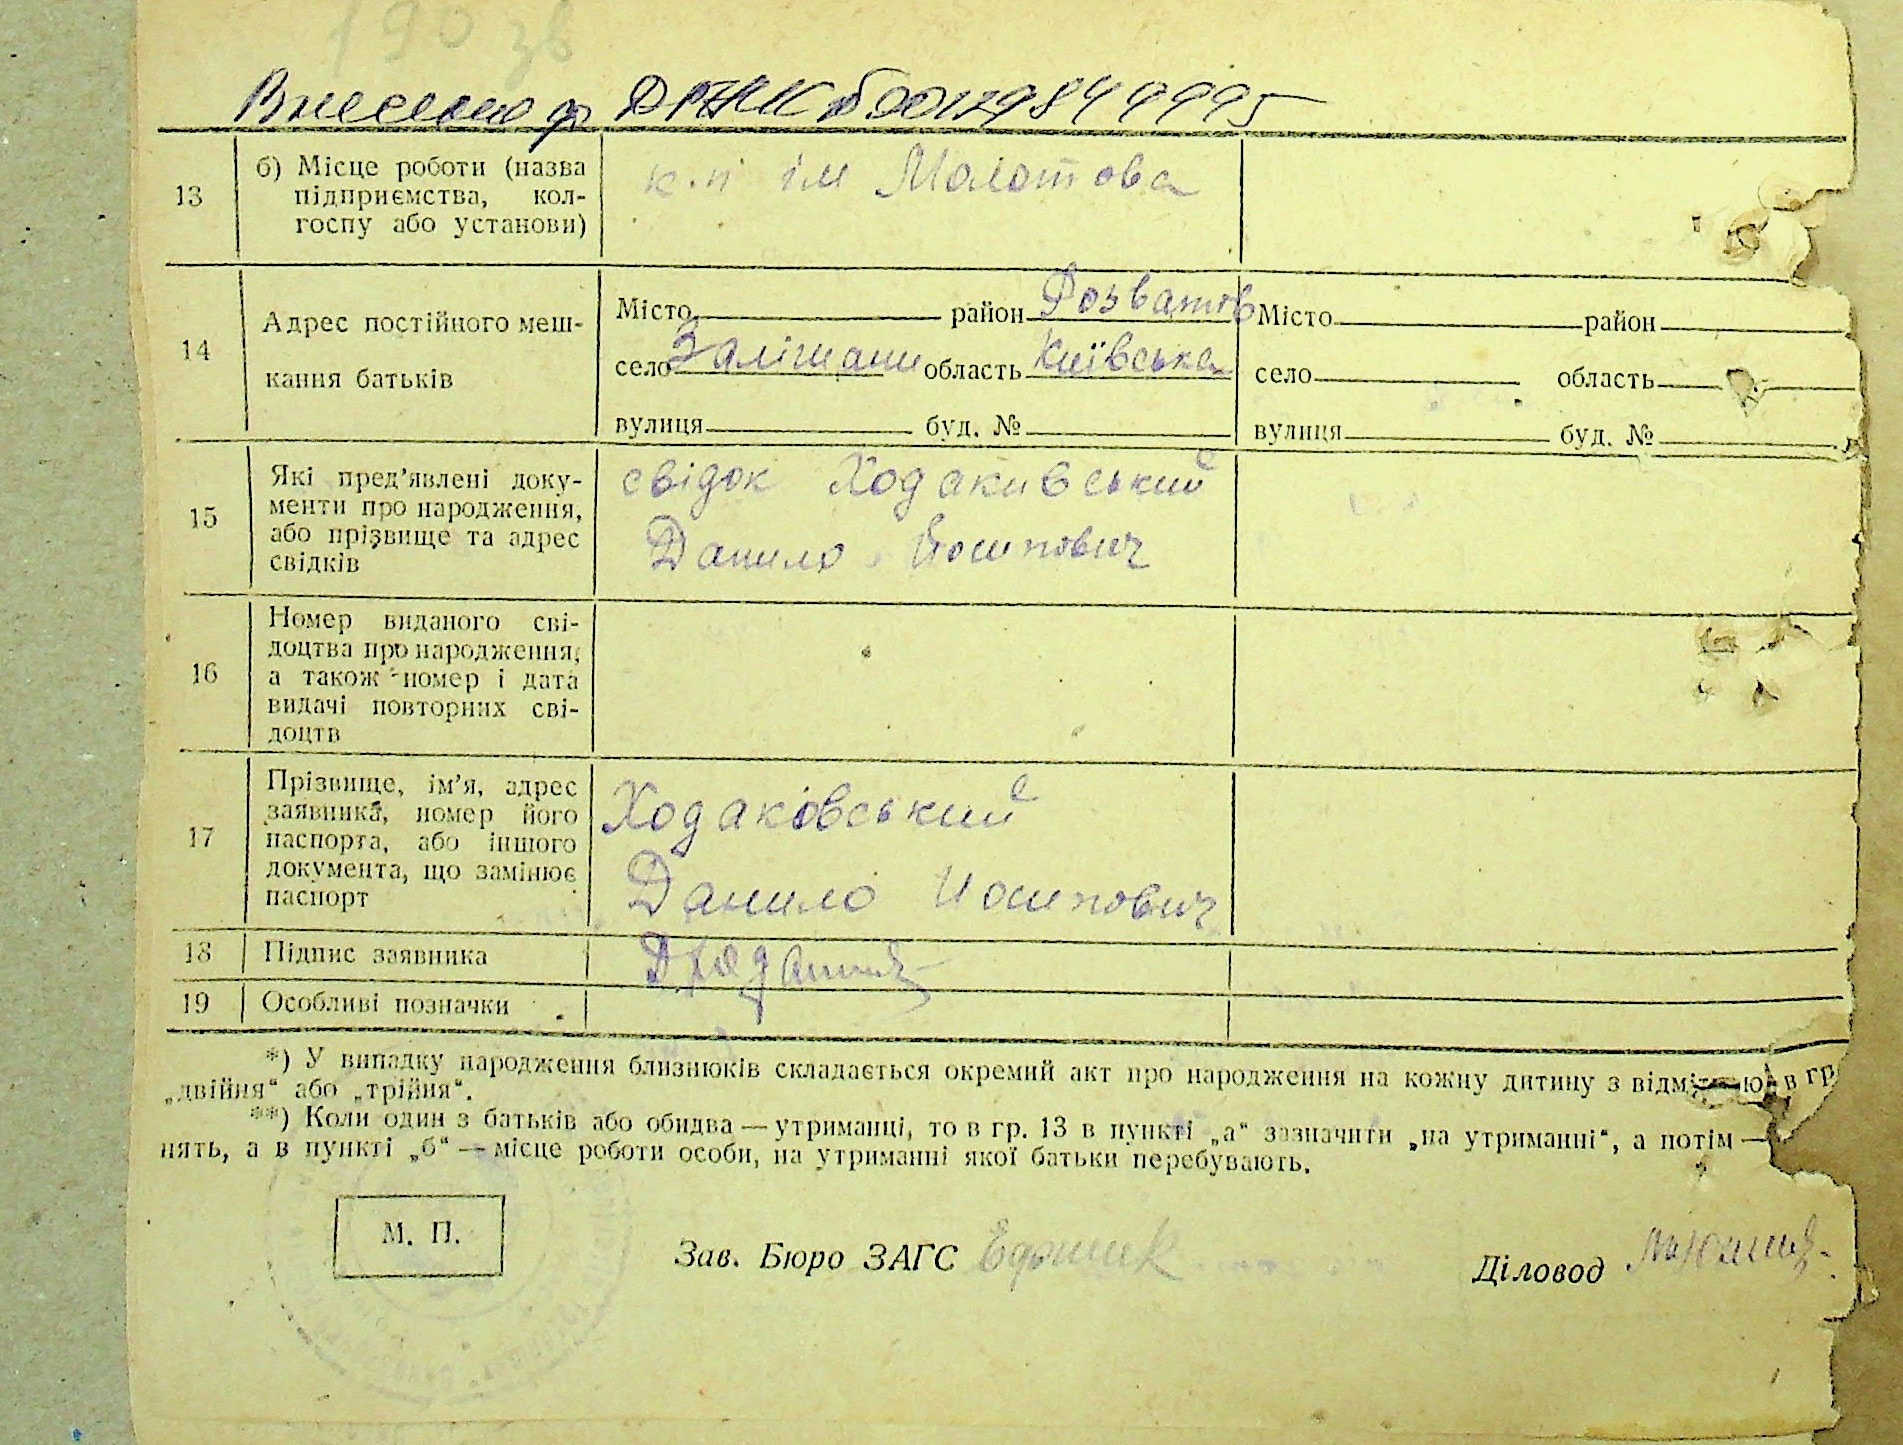 190 зв
Внесено до ДРАЦС 00129849995
13
б) Місце роботи (назва
підприємства, кол-
госпу або установи)
к.п ім Молотова
14
Адрес постійного меш-
кання батьків
Місто район Розважів
село Залішани область Київська
вулиця буд. №
Місто район
село область
вулиця буд. №
15
Які пред’явлені доку-
менти про народження,
або прізвище та адрес
свідків
свідок Ходаківський
Данило Йосипович
16
Номер виданого сві-
доцтва про народження,
а також номер і дата
видачі повторних сві-
доцтв
17
Прізвище, ім’я, адрес
заявника, номер його
паспорта, або іншого
документа, що замінює
паспорт
Ходаківський
Данило Йосипович
18 Підпис заявника
19 Особливі позначки
*) У випадку народження близнюків складається окремий акт про народження на кожну дитину з відміткою в гр.
„двійня“ або „трійня“.
**) Коли один з батьків або обидва — утриманці, то в гр. 13 в пункті „а“ зазначити „на утриманні“, а потім —
нять, а в пункті „б“ — місце роботи особи, на утриманні якої батьки перебувають.
М. П.
Зав. Бюро ЗАГС
Діловод